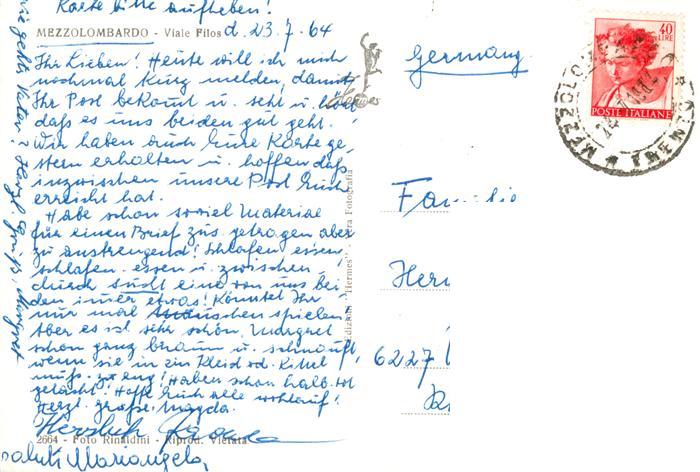 Karte bitte aufheben!
MEZZOLOMBARDO - Viale Filos
d. 23.7.64
Ihr Lieben! Heute will ich mich
nochmal kurz melden, damit
Ihr Post bekomt u. seht u. hört
daß es uns beiden gut geht.
Wir haben auch Eure Karte ge-
stern erhalten u. hoffen daß
inzwischen unsere Post Euch
erreicht hat.
Habe schon soviel Material
für einen Brief zus. getragen aber
zu anstrengend! Schlafen essen
schlafen essen u. zwischen-
durch sucht eine von uns bei-
den imer etwas! Könntet Ihr
nur mal Mäuschen spielen.
Aber es ist sehr schön. Margret
schon ganz braun u. schnauft,
wenn sie in ein Kleid od. Kittel
muß. zu eng! Haben schon halb tot
gelacht! Hoffe Euch alle wohlauf!
Herzl. Grüße, Magda.
Herzlich
2664 - Foto Rinaldini - Riprod. Vietata
saluti Mariangela
wie geht's Vater? Herzl. Grüße, Margret
Edizioni "Hermes" - Vera Fotografia
Germany
40
LIRE
POSTE ITALIANE
MEZZOLOMBARDO
TRENTO
Familie
Her
6227